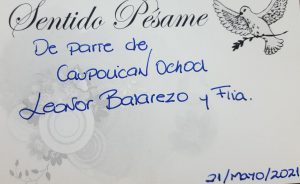 Sentido Pésame
De parte de
Caupolican Ochoa
Leonor Balarezo y Flia.
21/MAYO/2021